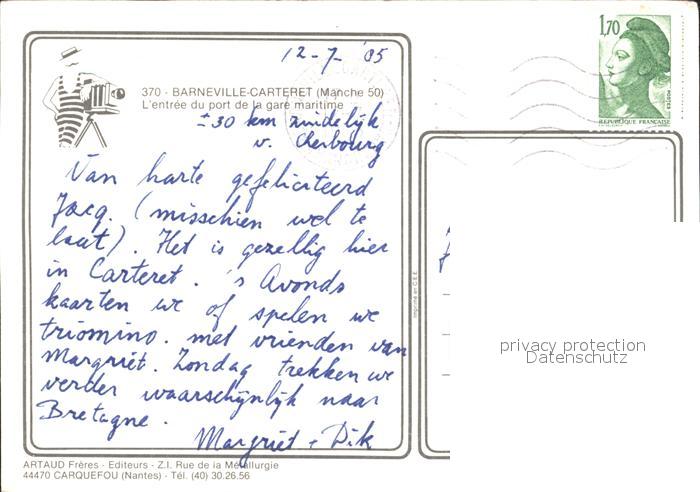 12-7 '85
1,70
POSTES
REPUBLIQUE FRANÇAISE
370 - BARNEVILLE-CARTERET (Manche 50)
L'entrée du port de la gare maritime
± 30 km zuidelijk
v. Cherbourg
Van harte gefeliciteerd
Jacq. (misschien wel te
laat). Het is gezellig hier
in Carteret. 's Avonds
kaarten we of spelen we
triomino. met vrienden van
Margriet. Zondag trekken we
verder waarschijnlijk naar
Bretagne.
Margriet + Dik
Imprimé en C.E.E.
privacy protection
Datenschutz
ARTAUD Frères - Editeurs - Z.I. Rue de la Métallurgie
44470 CARQUEFOU (Nantes) - Tél. (40) 30.26.56